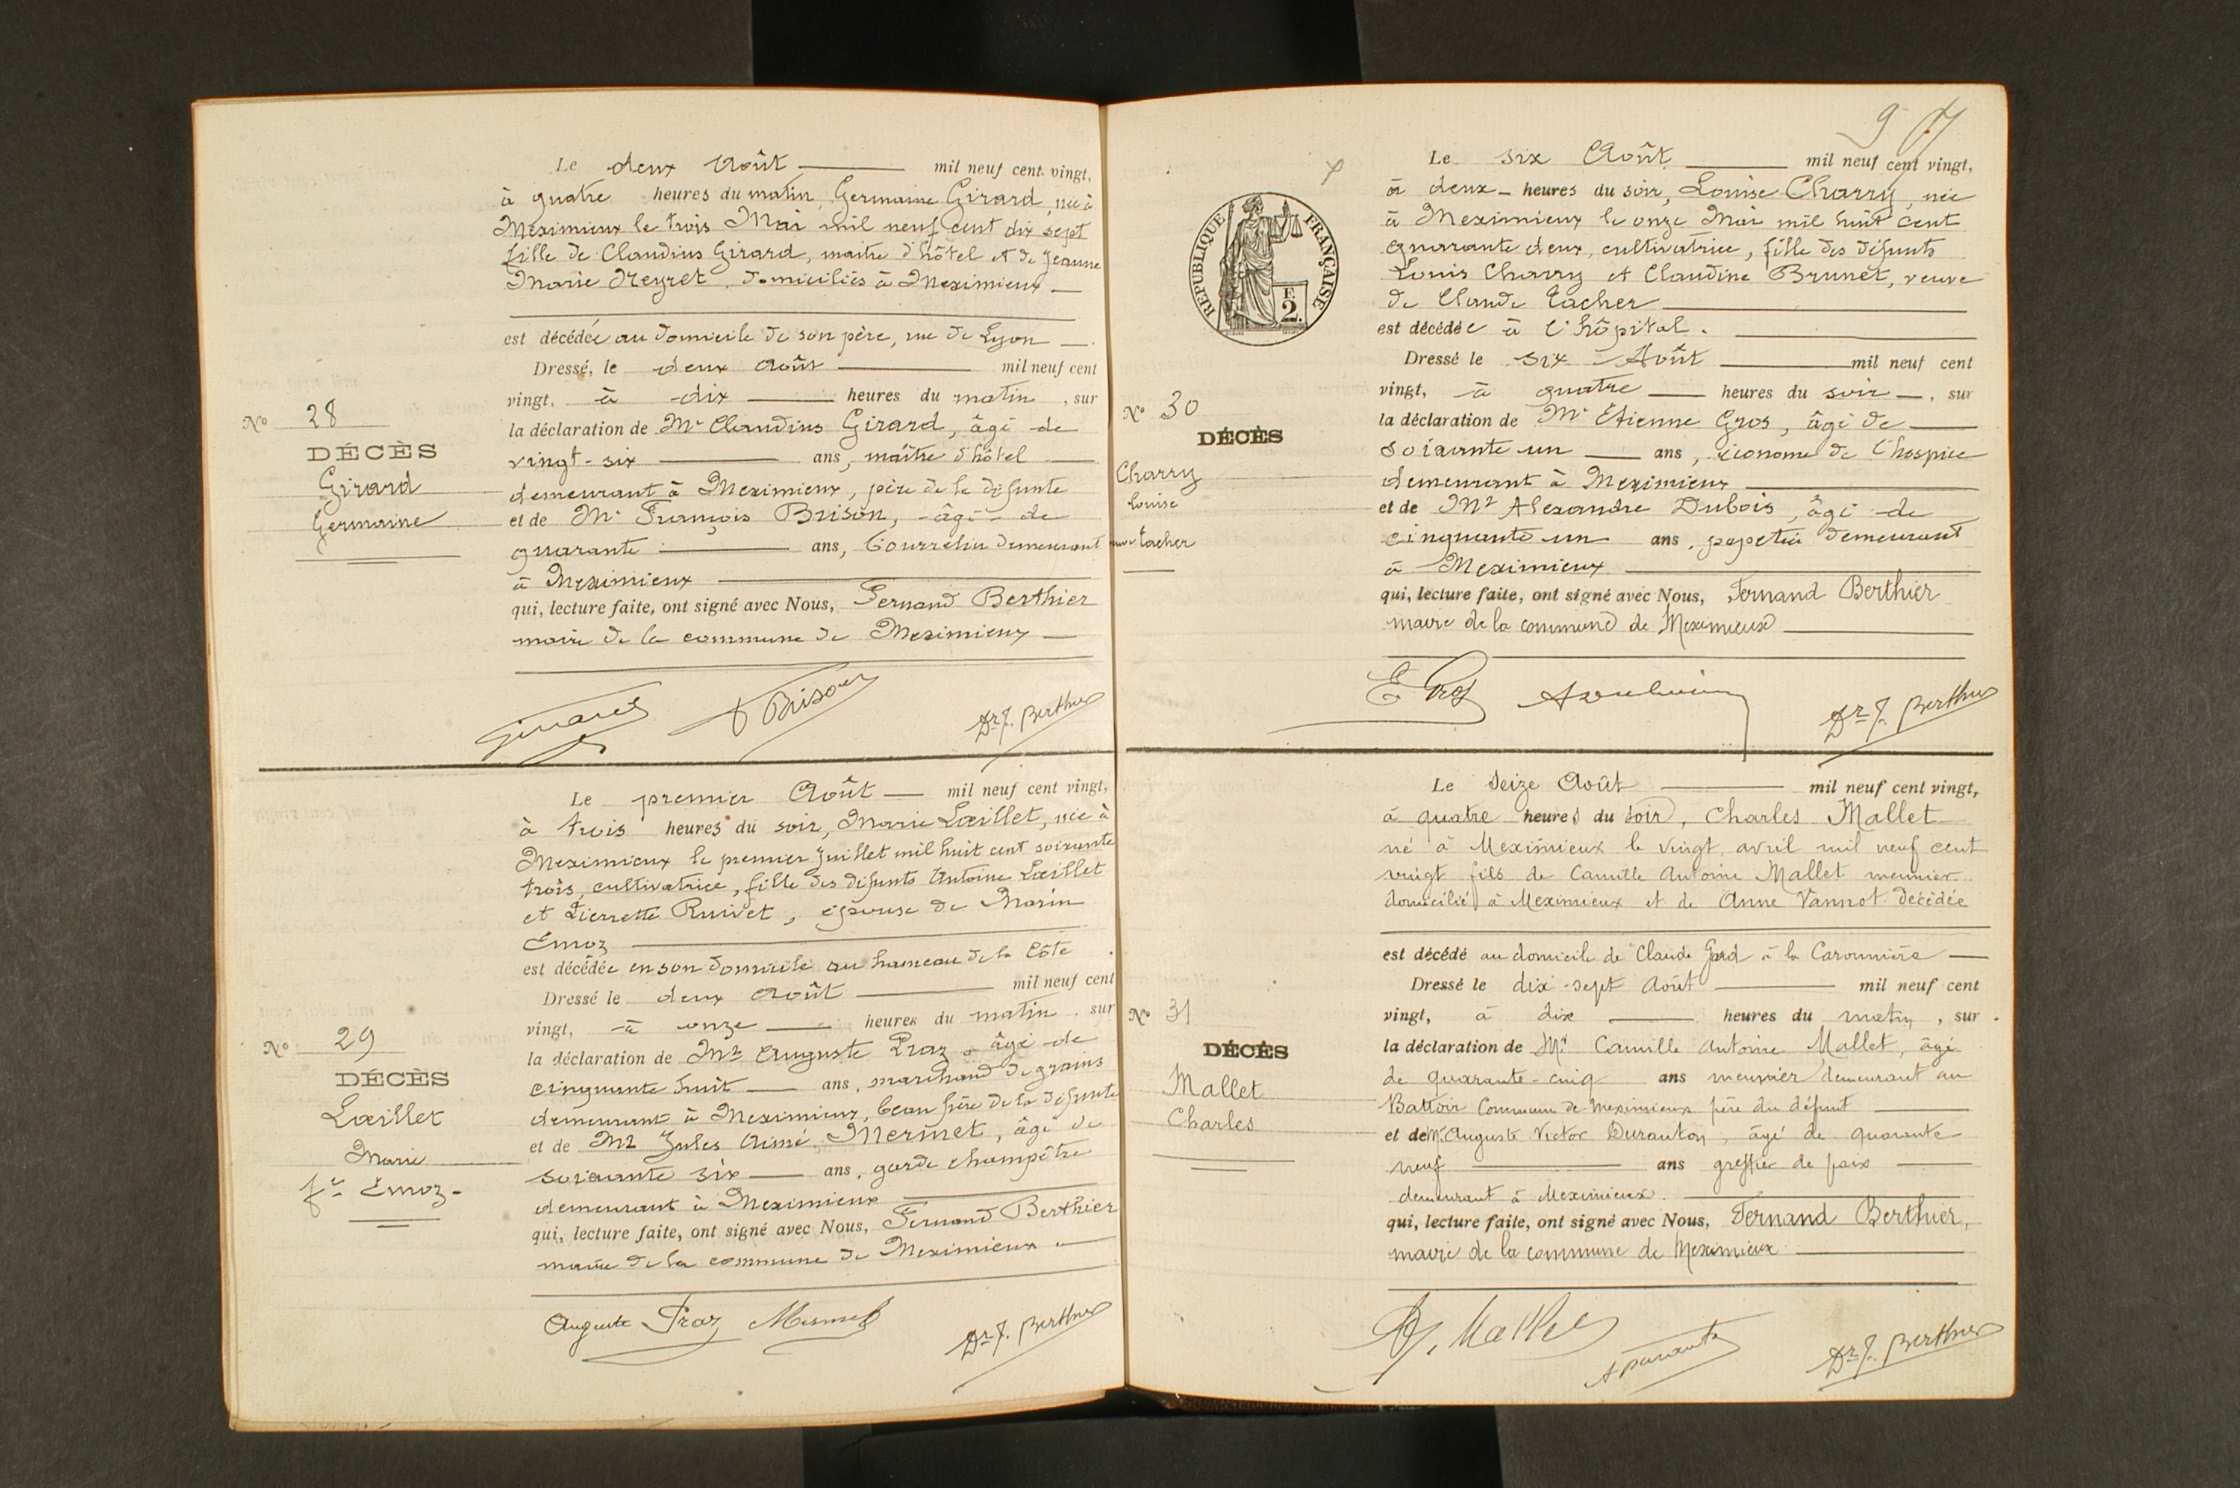 Le deux Août mil neuf cent vingt,
à quatre heures du matin, Germaine Girard, née à
Meximieux le trois Mai mil neuf cent dix sept
fille de Claudius Girard, maître d'hôtel et de Jeanne
Marie Neyret, domiciliés à Meximieux
est décédée au domicile de son père, rue de Lyon
Dressé, le deux Août mil neuf cent
vingt, à dix heures du matin, sur
la déclaration de Mr Claudius Girard, âgé de
vingt-six ans, maître d'hôtel
demeurant à Meximieux, père de la défunte
et de Mr François Brison, âgé de
quarante ans, bourrelier demeurant
à Meximieux
qui, lecture faite, ont signé avec Nous, Fernand Berthier
maire de la commune de Meximieux
No 28
DÉCÈS
Girard
Germaine
Girard Brison Dr F. Berthier
Le premier Août mil neuf cent vingt,
à trois heures du soir, Marie Lœillet, née à
Meximieux le premier Juillet mil huit cent soixante
trois, cultivatrice, fille des défunts Antoine Lœillet
et Pierrette Ruivet, épouse de Marin
Emoz
est décédée en son domicile au hameau de la Côte.
Dressé le deux Août mil neuf cent
vingt, à onze heures du matin, sur
la déclaration de Mr Auguste Praz, âgé de
cinquante huit ans, marchand de grains
demeurant à Meximieux, beau frère de la défunte
et de Mr Jules Aimé Mermet, âgé de
soixante six ans, garde champêtre
demeurant à Meximieux
qui, lecture faite, ont signé avec Nous, Fernand Berthier
maire de la commune de Meximieux
No 29
DÉCÈS
Lœillet
Marie
fe Emoz
Auguste Praz Mermet Dr F. Berthier
9
RÉPUBLIQUE FRANÇAISE
F.
2.
Le six Août mil neuf cent vingt,
à deux heures du soir, Louise Charry, née
à Meximieux le onze Mai mil huit cent
quarante deux, cultivatrice, fille des défunts
Louis Charry et Claudine Brunet, veuve
de Claude Tacher
est décédée à l'hôpital.
Dressé le six Août mil neuf cent
vingt, à quatre heures du soir, sur
la déclaration de Mr Etienne Gros, âgé de
soixante un ans, économe de l'hospice
demeurant à Meximieux
et de Mr Alexandre Dubois, âgé de
cinquante un ans, papetier demeurant
à Meximieux
qui, lecture faite, ont signé avec Nous, Fernand Berthier
maire de la commune de Meximieux
No 30
DÉCÈS
Charry
Louise
veuve Tacher
E Gros Dr F. Berthier
Le seize Août mil neuf cent vingt,
à quatre heures du soir, Charles Mallet
né à Meximieux le vingt avril mil neuf cent
vingt fils de Camille Antoine Mallet meunier
domicilié à Meximieux et de Anne Vannot décédée
est décédé au domicile de Claude Gard à la Caronnière
Dressé le dix-sept Août mil neuf cent
vingt, à dix heures du matin, sur
la déclaration de Mr Camille Antoine Mallet, âgé
de quarante-cinq ans meunier demeurant au
Battoir Commune de Meximieux père du défunt
et de Mr Auguste Victor Duranton, âgé de quarante
neuf ans greffier de paix
demeurant à Meximieux.
qui, lecture faite, ont signé avec Nous, Fernand Berthier,
maire de la commune de Meximieux
No 31
DÉCÈS
Mallet
Charles
Mallet Dr F. Berthier